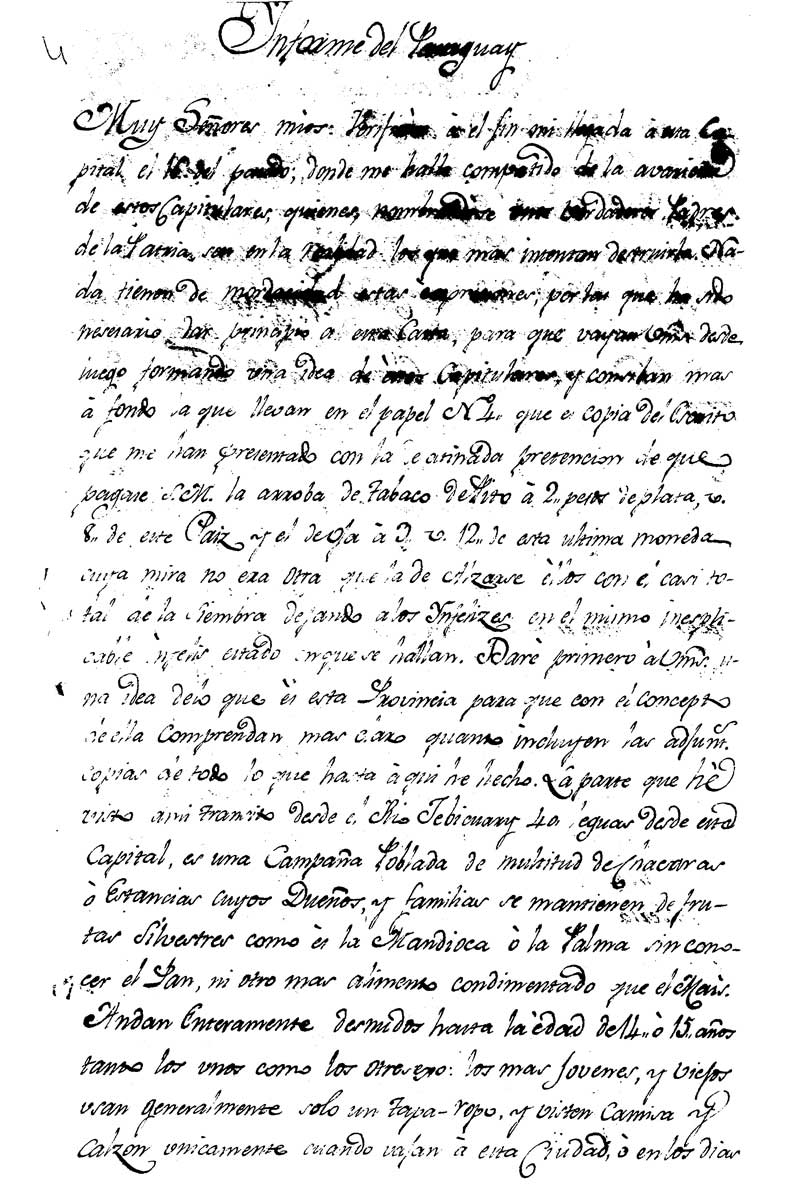 4
Informe del Paraguay
Muy Señores mios: à el fin mi llegada à esta Ca-
pital el 16 del pasado; donde me hallo de la
de estos Capitulares, quienes, Padres
de la Patria, son en la realidad los que mas intentan destruirla. Na-
da tienen de mordacidad estas expresiones, por las que ha sido
nesesario dar principio a esta Carta, para que vayan Vms. desde
luego formando una idea de estos Capitulares, y mas
à fondo la que llevan en el papel Nº 4. que es copia del Escrito
que me han presentado con la pretencion de que
pagase S.M. la arroba de tabaco de Pito à 2,, pesos de plata, v.
8,, de este Paiz y el de Oja à 3. v. 12,, de esta ultima moneda
cuya mira no era otra que la de ellos con el casi to-
tal de la Siembra dejando a los Ynfelizes en el mismo inespli-
cable infelis estado en que se hallan. Darè primero à Vms. u-
na idea de lo que ès esta Provincia para que con el concepto
de ella Comprendan mas claro quanto incluyen las adjunt.
copias de todo lo que hasta àqui he hecho. La parte que hè
visto a mi transito desde el Rio Tebicuary 40 leguas desde esta
Capital, es una Campaña Poblada de multitud de Chacaras
ò Estancias cuyos Dueños, y familias se mantienen de fru-
tas Silvestres como ès la Mandioca ò la Palma sin cono-
cer el Pan, ni otro mas alimento condimentado que el Mais.
Andan Enteramente desnudos hasta la èdad de 14,, ò 15,, años
tanto los unos como los otro sexo: los mas Jovenes, y Viejos
usan generalmente solo un tapa-ropo, y visten Camisa y
Calzon unicamente cuando vajan à esta Ciudad, ò en los dias